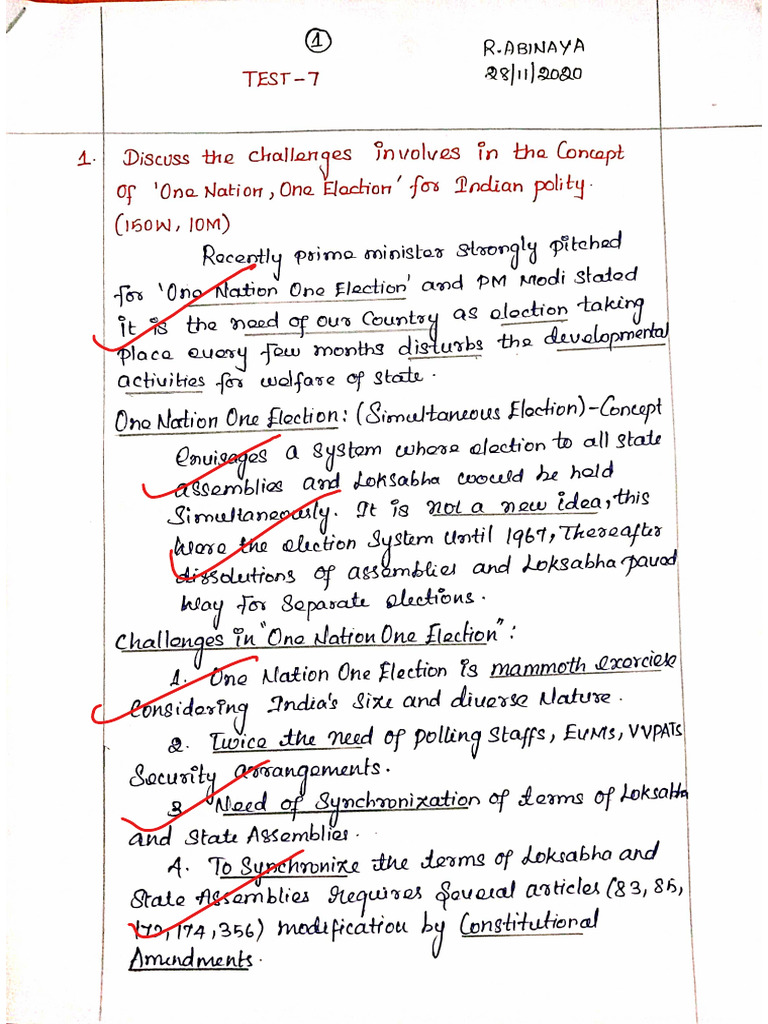 1
R.ABINAYA
TEST-7
28/11/2020
1. Discuss the challenges involves in the Concept
of 'One Nation, One Election' for Indian polity.
(150W, 10M)
Recently prime minister strongly pitched
for 'One Nation One Election' and PM Modi stated
it is the need of our Country as election taking
place every few months disturbs the developmental
activities for welfare of state.
One Nation One Election: (Simultaneous Election)-Concept
envisages a system where election to all state
assemblies and Loksabha would be held
Simultaneously. It is not a new idea, this
were the election system until 1967, Thereafter
dissolutions of assemblies and Loksabha paved
way for separate elections.
Challenges in "One Nation One Election":
1. One Nation One Election is mammoth exercise
Considering India's size and diverse Nature.
2. Twice the need of polling staffs, EVMs, VVPATs
Security arrangements.
3 Need of Synchronization of terms of Loksabha
and State Assemblies.
4. To Synchronize the terms of Loksabha and
State Assemblies requires several articles (83, 85,
172, 174, 356) modification by Constitutional
Amendments.